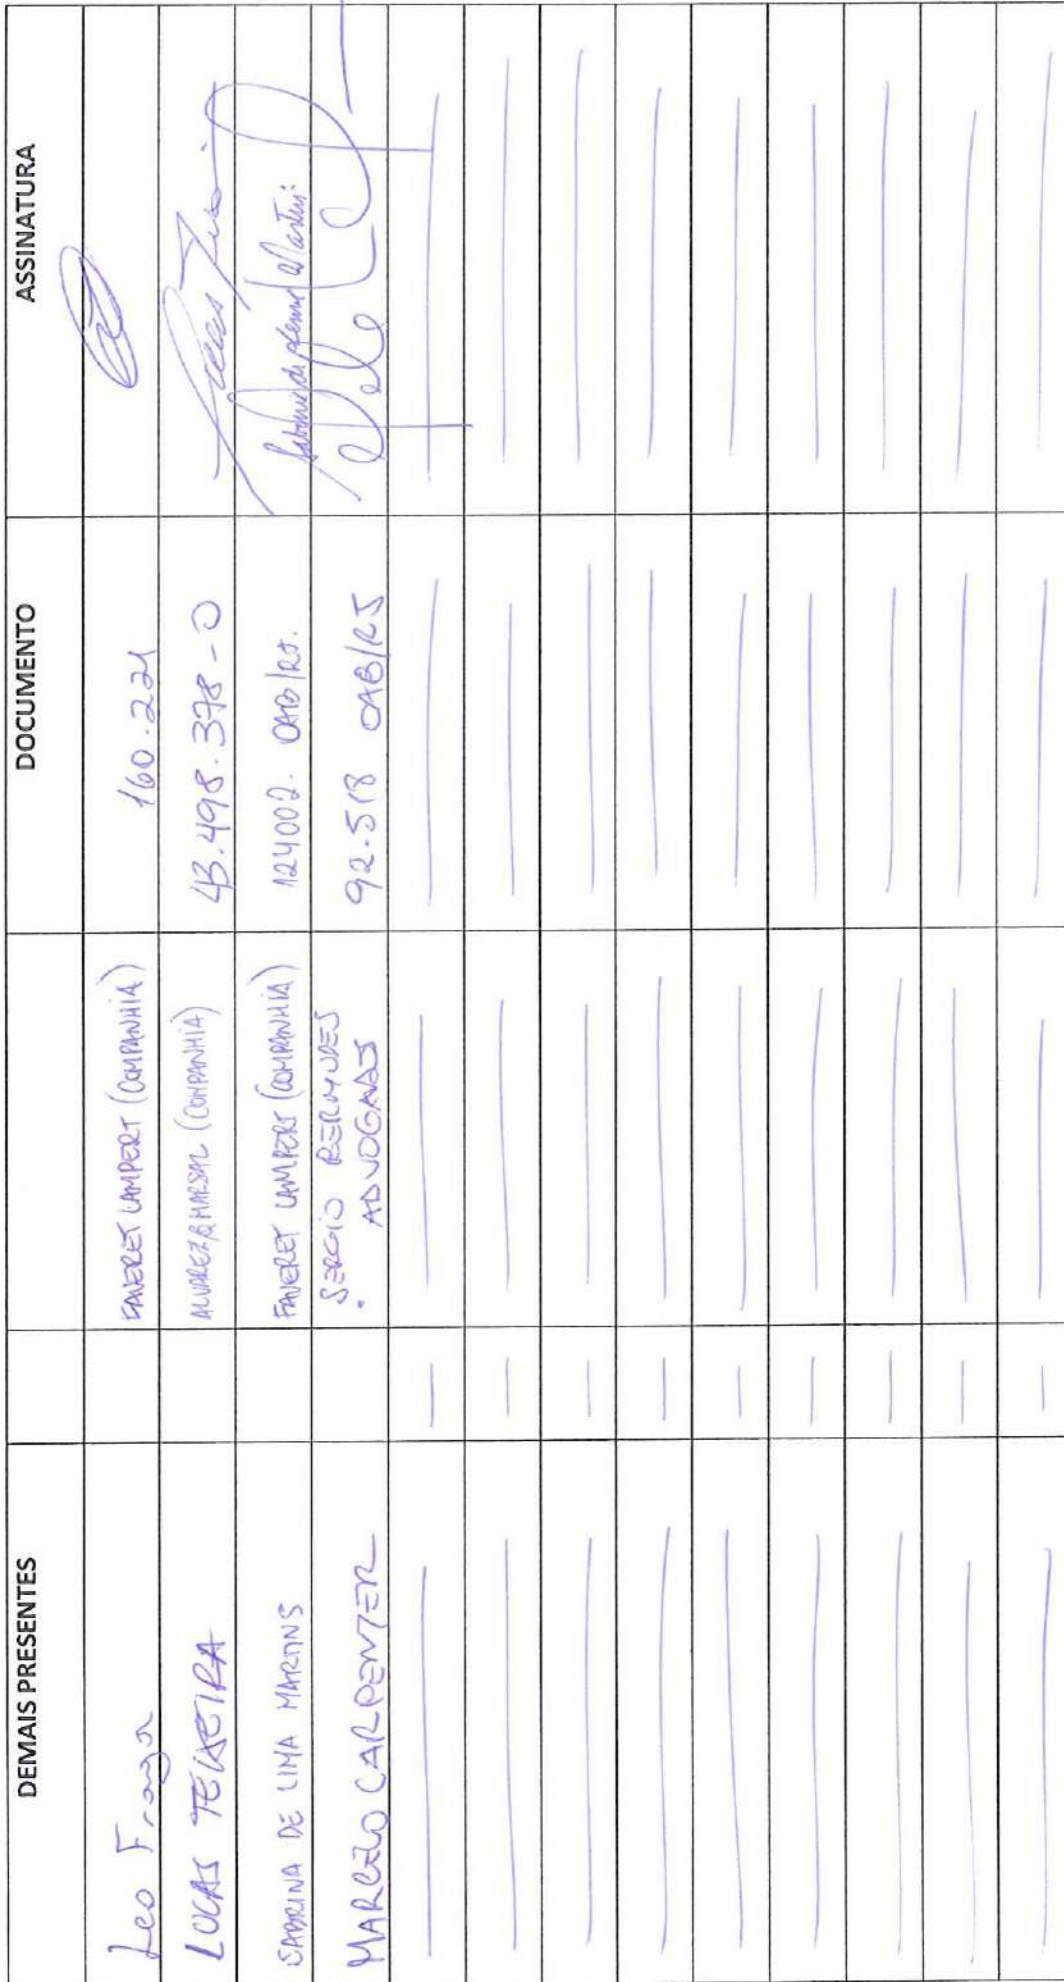 DEMAIS PRESENTES DOCUMENTO ASSINATURA
Leo Fraga FAVERET LAMPERT (COMPANHIA) 160.221
LUCAS TEIXEIRA ALVAREZ & MARSAL (COMPANHIA) 43.498.378-0
SABRINA DE LIMA MARTINS FAVERET LAMPERT (COMPANHIA) 124002. OAB/RJ. Sabrina de Lima Martins
MARCELO CARPENTER SERGIO BERMUDES
ADVOGADOS 92.518 OAB/RJ